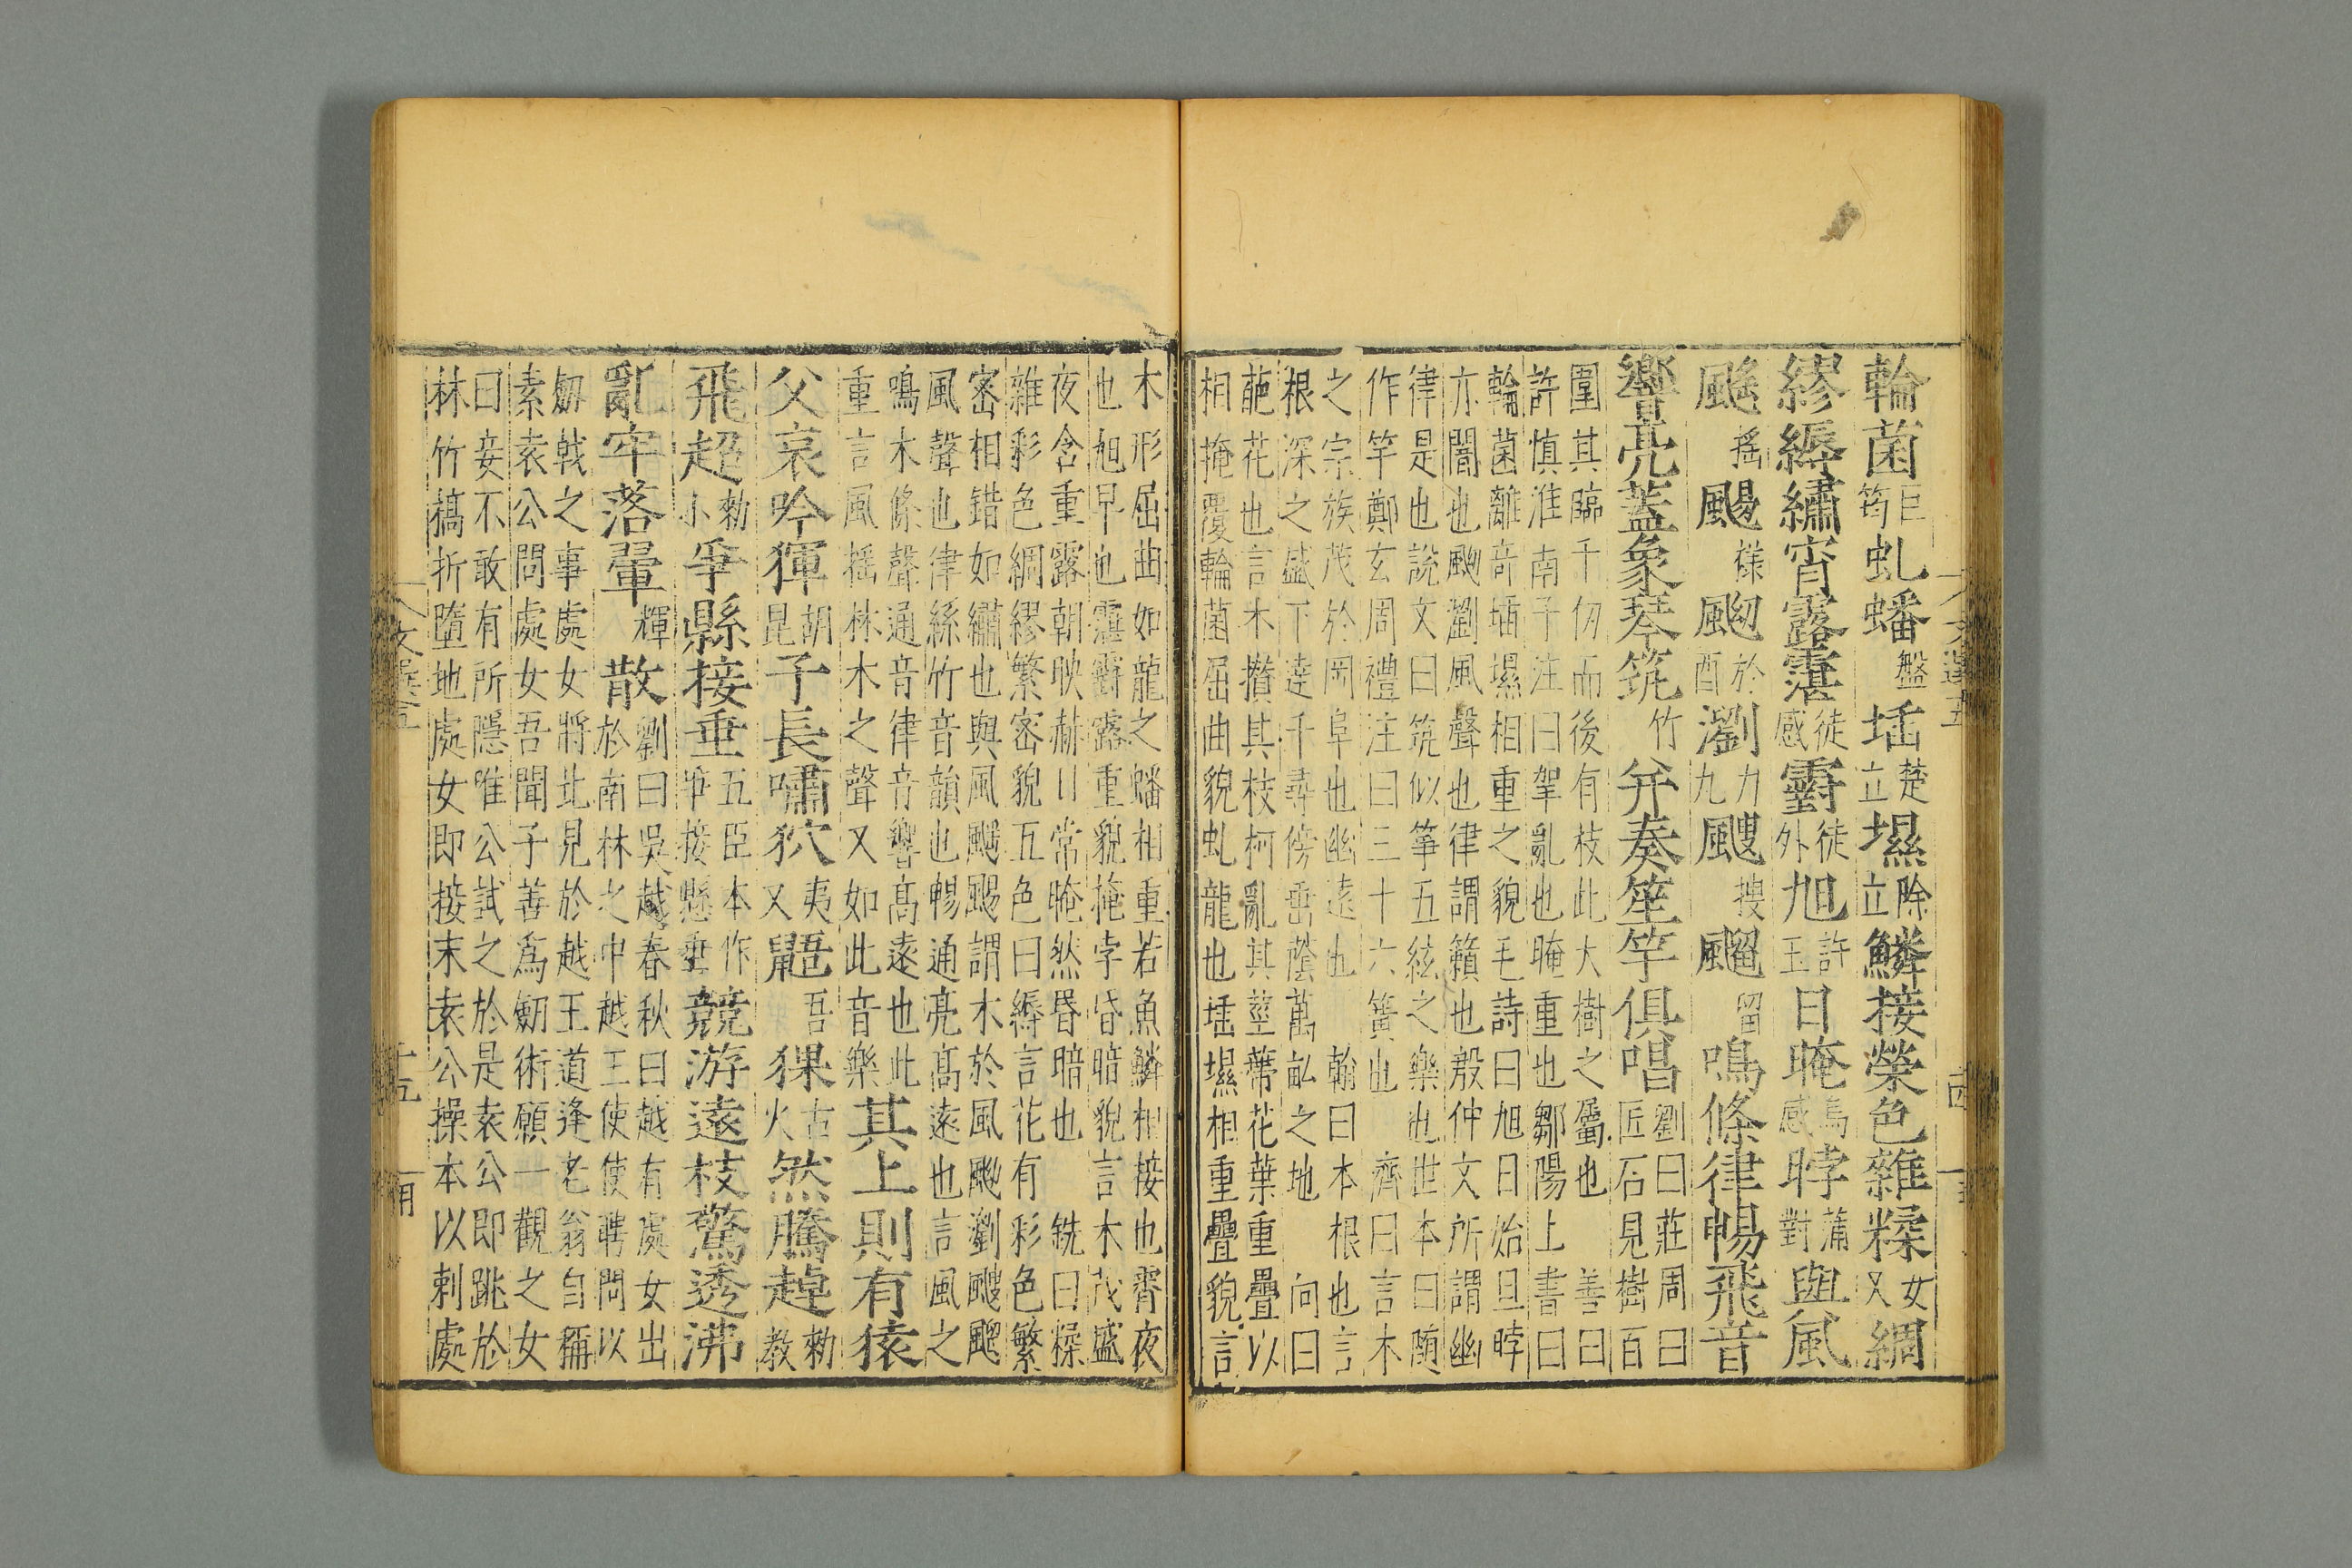 輪菌巨筠虬蟠盤𡍪楚立㙷除立鱗接榮色雜糅女又綢
繆縟繡宵露霮徒感䨴徒外旭許玉日晻烏感㫲蒲對與風
飖揺颺様䬀於酉瀏力九颼搜飀留鳴條律暢飛音
響亮蓋象琴筑竹并奏笙竽俱唱劉曰莊周曰匠石見樹百
圍其臨千仞而後有枝此大樹之屬也 善曰
許慎淮南子注曰挐亂也晻重也鄒陽上書曰
輪菌離竒𡍪㙷相重之貌毛詩曰旭日始旦㫲
亦闇也䬀瀏風聲也律謂籟也殷仲文所謂幽
律是也說文曰筑似筝五絃之樂也世本曰随
作竽鄭玄周禮注曰三十六簧也 濟曰言木
之宗族茂於岡阜也幽遠也 翰曰本根也言
根深之盛下逹千尋傍垂蔭萬畝之地 向曰
葩花也言木攅其枝柯亂其莖蔕花葉重疊以
相掩覆輪菌屈曲貌虬龍也𡍪㙷相重疊貌言
木形屈曲如龍之蟠相重若魚鱗相接也宵夜
也旭早也霮䨴露重貌掩㫲昏暗貌言木茂盛
夜含重露朝映赫日常晻然昬暗也 銑曰糅
雜彩色綢繆繁密貌五色曰縟言花有彩色繁
密相錯如繡也與風飖颺謂木於風䬀瀏颼飀
風聲也律絲竹音韻也暢通亮髙遠也言風之
鳴木條聲通音律音響髙遠也此重言風揺林木之聲又如此音樂其上則有猿
父哀吟㹆胡昆子長嘯狖夷又鼯吾猓古火然騰趠勑教
飛超勑小爭縣接垂五臣本作爭接懸垂競游遠枝驚透沸
亂牢落翬輝散劉曰吳越春秋曰越有處女出於南林之中越王使使聘問以
劔戟之事處女將北見於越王道逢老翁自稱
素袁公問處女吾聞子善為劔術願一觀之女
曰妾不敢有所隱唯公試之於是袁公即跳於
林竹槁折墮地處女即接末袁公操本以刺處